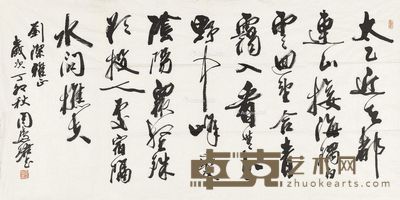 太乙近天都
連山接海隅白
雲回望合青
靄入看無分
野中峰變
陰陽眾壑殊
欲投人處宿隔
水問樵夫
劉深雅正
歲次丁卯秋周
卓克艺术网
zhuokearts.com